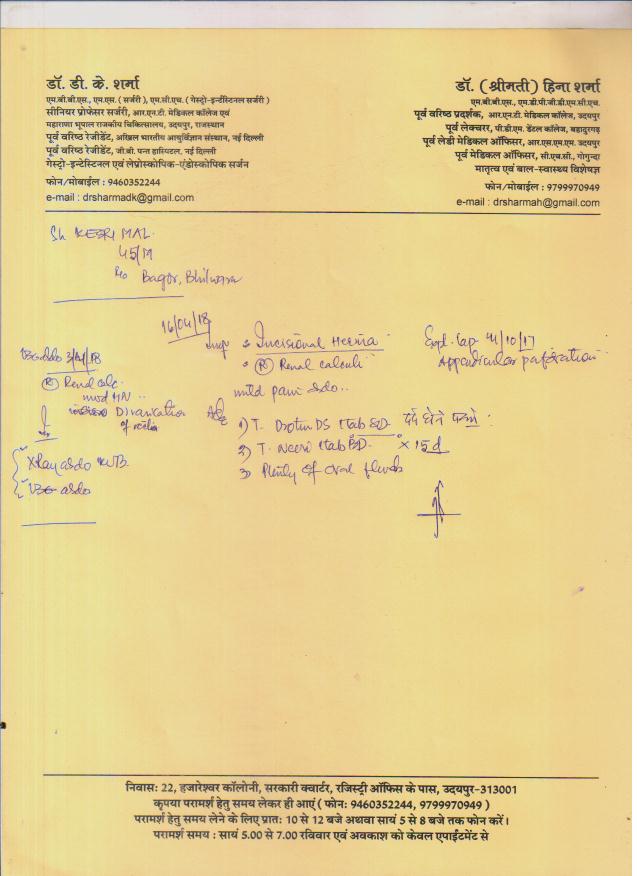 डॉ. डी. के. शर्मा
एम.बी.बी.एस., एम.एस. ( सर्जरी ), एम.सी.एच. ( गेस्ट्रो-इन्टेंस्टिनल सर्जरी )
सीनियर प्रोफेसर सर्जरी, आर.एन.टी. मेडिकल कॉलेज एवं
महाराणा भूपाल राजकीय चिकित्सालय, उदयपुर, राजस्थान
पूर्व वरिष्ठ रेजीडेंट, अखिल भारतीय आयुर्विज्ञान संस्थान, नई दिल्ली
पूर्व वरिष्ठ रेजीडेंट, जी.बी. पन्त हास्पिटल, नई दिल्ली
गेस्ट्रो-इन्टेस्टिनल एवं लेप्रोस्कोपिक-एंडोस्कोपिक सर्जन
फोन/मोबाईल : 9460352244
e-mail : drsharmadk@gmail.com
डॉ. (श्रीमती) हिना शर्मा
एम.बी.बी.एस., एम.डी.पी.जी.डी.एम.सी.एच.
पूर्व वरिष्ठ प्रदर्शक, आर.एन.टी. मेडिकल कॉलेज, उदयपुर
पूर्व लेक्चरर, पी.डी.एम. डेंटल कॉलेज, बहादुरगढ़
पूर्व लेडी मेडिकल ऑफिसर, आर.एस.एम.एम. उदयपुर
पूर्व मेडिकल ऑफिसर, सी.एच.सी., गोगुन्दा
मातृत्व एवं बाल-स्वास्थ्य विशेषज्ञ
फोन/मोबाईल : 9799970949
e-mail : drsharmah@gmail.com
Sh KESRI MAL
45/M
R/o Bagor, Bhilwara
16/04/18
Incisional Hernia
Expl. Lap 4/10/17
(R) Renal calculi
Appendicular perforation
mild pain abdo..
USG abdo 3/4/18
(R) Renal calc.
mod HN
Divarication
of recti
Xray abdo KUB
USG abdo
Adv
1) T. Drotin DS 1tab SOS दर्द होने पर
2) T. Neeri 1tab BD. × 15 d
3) Plenty of oral fluids
निवास: 22, हजारेश्वर कॉलोनी, सरकारी क्वार्टर, रजिस्ट्री ऑफिस के पास, उदयपुर-313001
कृपया परामर्श हेतु समय लेकर ही आएं ( फोन: 9460352244, 9799970949 )
परामर्श हेतु समय लेने के लिए प्रात: 10 से 12 बजे अथवा सायं 5 से 8 बजे तक फोन करें।
परामर्श समय : सायं 5.00 से 7.00 रविवार एवं अवकाश को केवल एपाईंटमेंट से